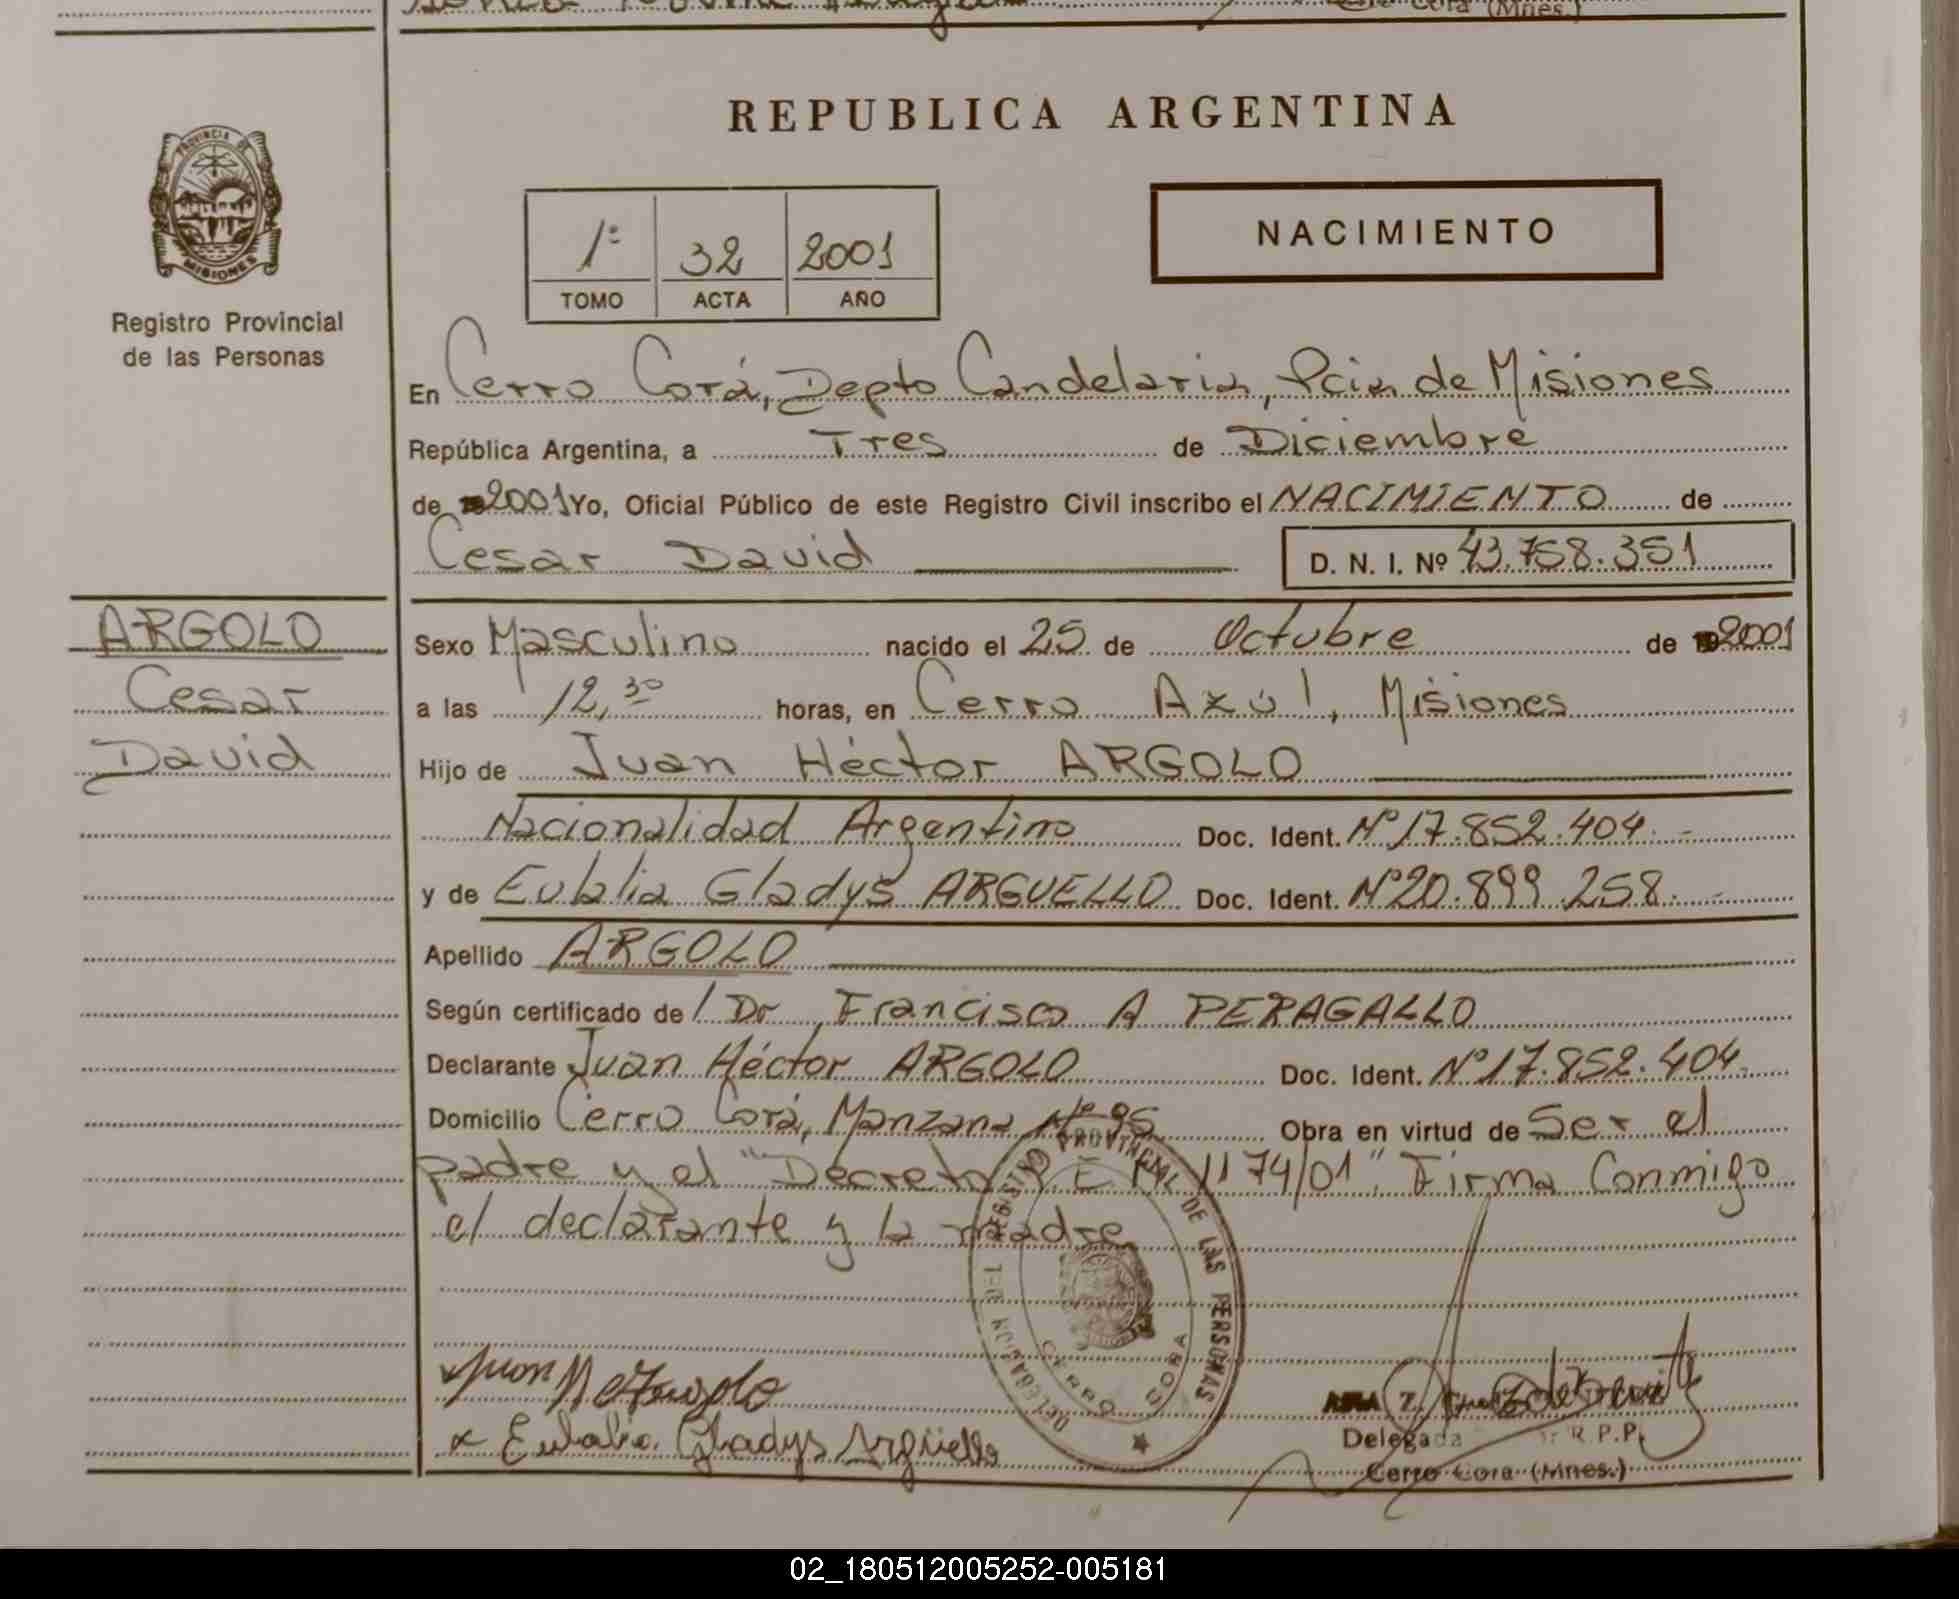 Cora (Mnes.)
REPUBLICA ARGENTINA
PROVINCIA DE
MISIONES
Registro Provincial
de las Personas
1º 32 2001
TOMO ACTA AÑO
NACIMIENTO
En Cerro Corá, Depto Candelaria, Pcia de Misiones
República Argentina, a Tres de Diciembre
de 2001 Yo, Oficial Público de este Registro Civil inscribo el NACIMIENTO de
Cesar David D. N. I. Nº 43.758.351
ARGOLO
Cesar
David
Sexo Masculino nacido el 25 de Octubre de 2001
a las 12,30 horas, en Cerro Azúl, Misiones
Hijo de Juan Héctor ARGOLO
Nacionalidad Argentino Doc. Ident. Nº 17.852.404.-
y de Eulalia Gladys ARGUELLO Doc. Ident. Nº 20.899.258.-
Apellido ARGOLO
Según certificado de / Dr Francisco A PERAGALLO
Declarante Juan Héctor ARGOLO Doc. Ident. Nº 17.852.404.
Domicilio Cerro Corá, Manzana Nº 95 Obra en virtud de Ser el
padre y el "Decreto P. E. Nº 1174/01". Firma Conmigo
el declarante y la madre
REGISTRO PROVINCIAL DE LAS PERSONAS
CERRO CORA
Juan H Argolo
x Eulalia Gladys Argüello
Delegada R.P.P.
Cerro Cora (Mnes.)
02_180512005252-005181